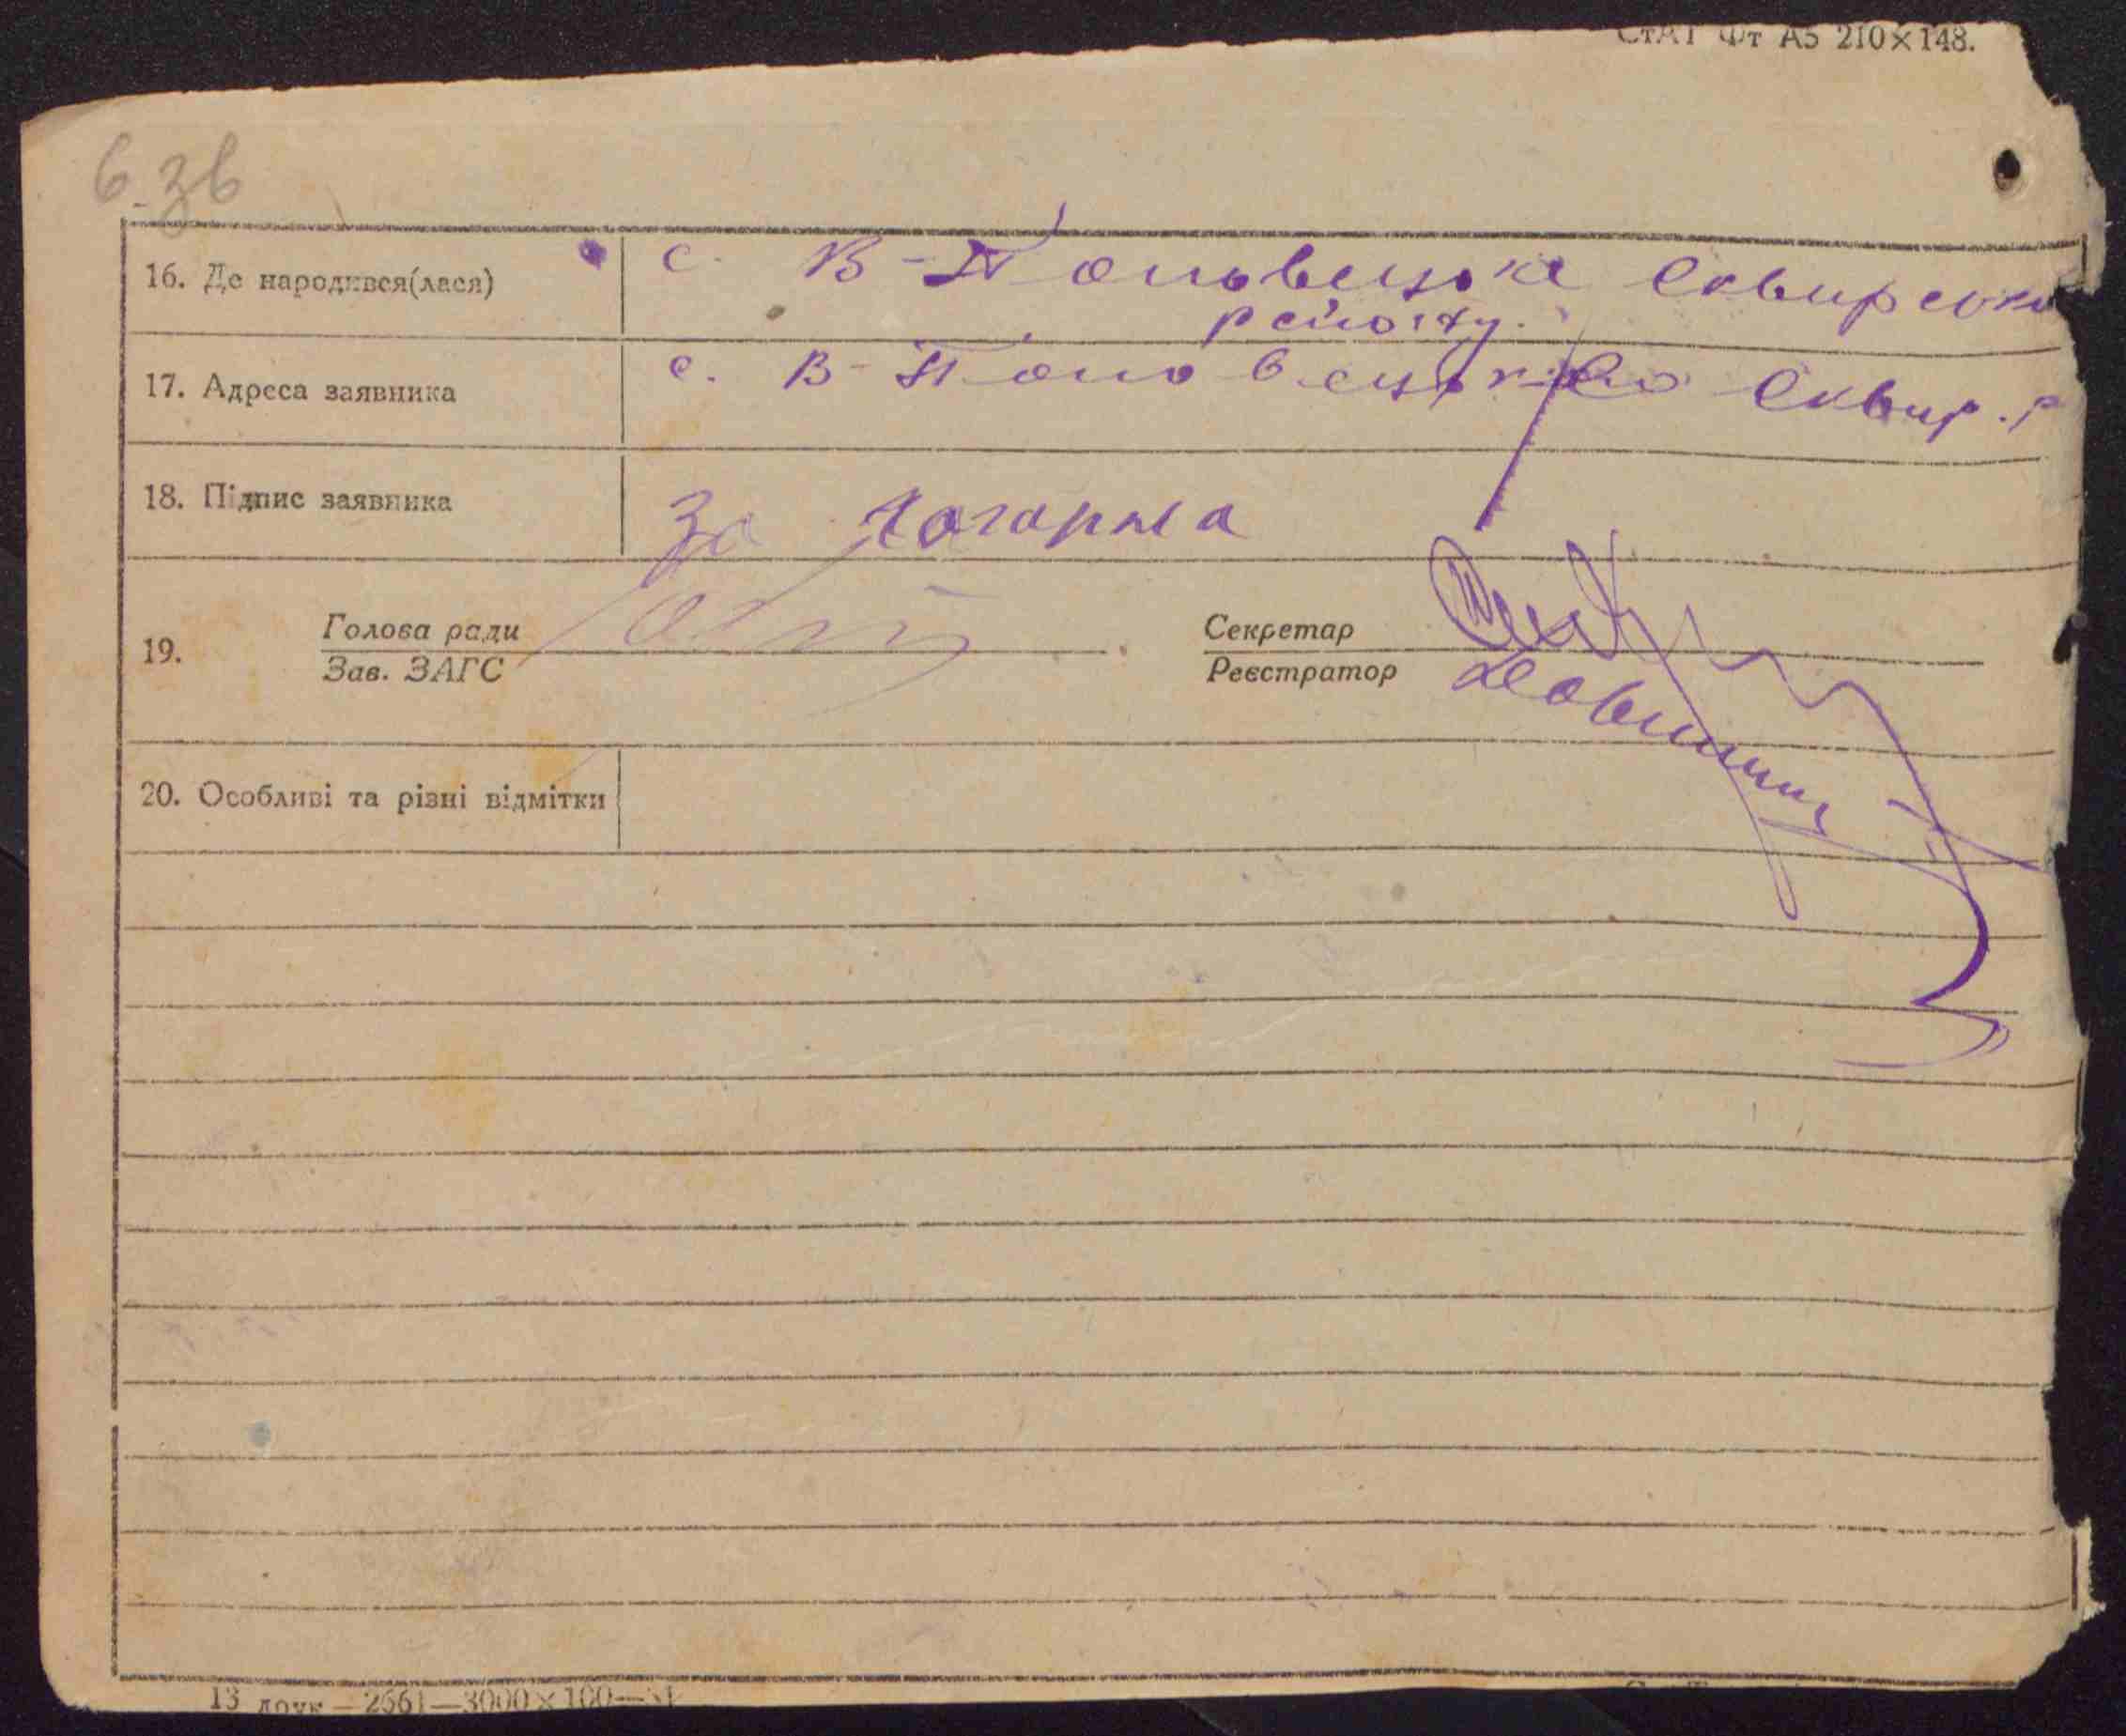 СтАТ Фт А5 210×148.
6 зв
16. Де народився(лася) с. В-Половецьке Сквирсько
району.
17. Адреса заявника с. В-Половецьке Сквир. р
18. Підпис заявника За
19. Голова ради Секретар
Зав. ЗАГС Реєстратор
20. Особливі та різні відмітки
13 друк — 2661—3000×100—